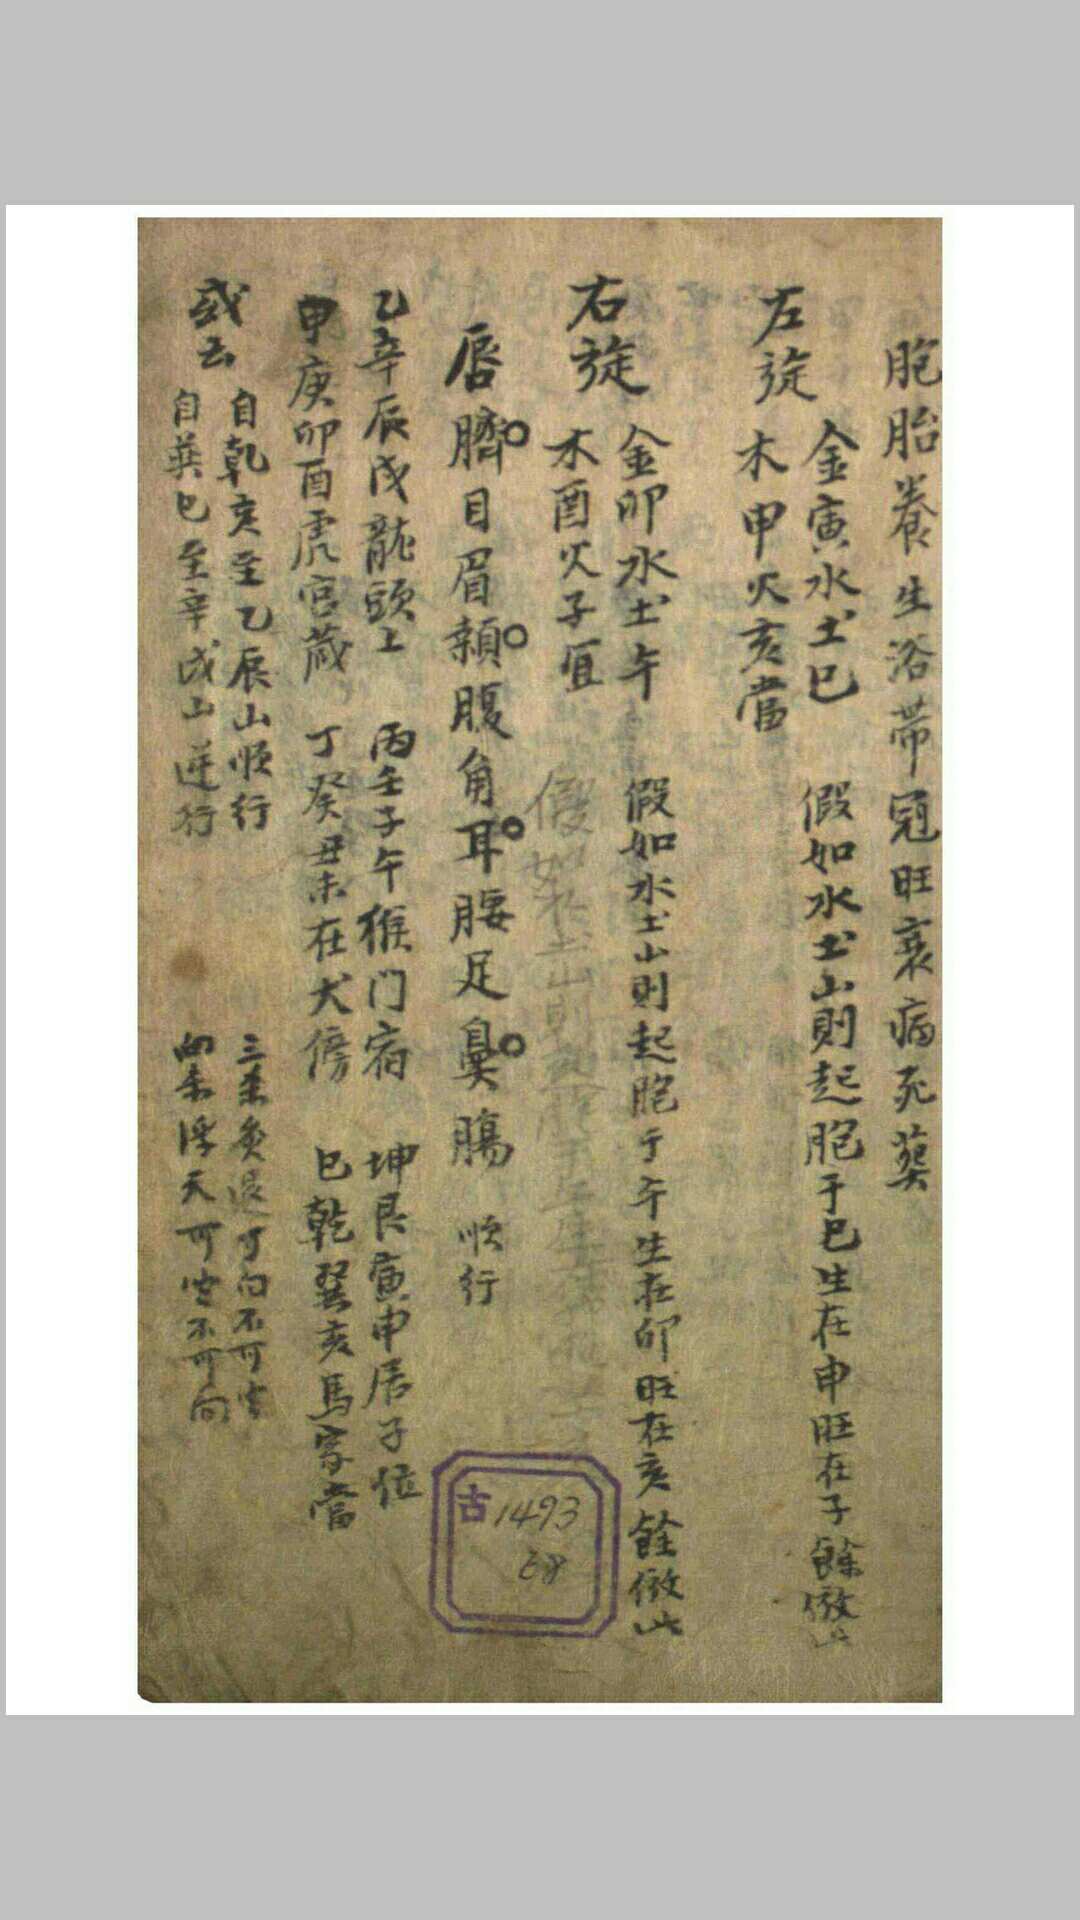 胞胎養生浴帶冠旺衰病死葬
左旋
金寅水土巳
木申火亥當
假如水土山則起胞于巳生在申旺在子餘倣此
右旋
金卯水土午
木酉火子宜
假如水土山則起胞于午生在卯旺在亥餘倣此
唇臍目眉顙腹角耳腰足鼻腸 順行
乙辛辰戌龍頭上 丙壬子午猴門宿 坤艮寅申居子位
甲庚卯酉虎宮藏 丁癸丑未在犬傍 巳乾巽亥馬家當
或云
自乾亥至乙辰山順行
自巽巳至辛戌山逆行
可向不可坐
浮天可坐不可向
古1493
68